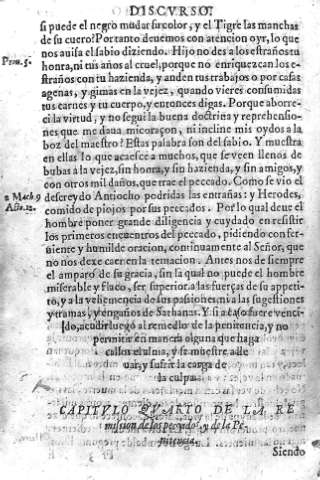 DISCVRSO.
si puede el negro mudar su color, y el Tigre las manchas
de su cuero? Por tanto deuemos con atencion oyr, lo que
nos auisa el sabio diziendo. Hijo no des a los estraños tu
Prou. 5.
honra, ni tus años al cruel, porque no enriquezcan los e-
straños con tu hazienda, y anden tus trabajos por casas
agenas, y gimas en la vejez, quando vieres consumidas
tus carnes y tu cuerpo, y entonces digas. Porque aborre-
ci la virtud, y no segui la buena doctrina y reprehensio-
nes que me daua mi coraçon, ni incline mis oydos a la
boz del maestro? Estas palabras son del sabio. Y muestra
en ellas lo que acaesce a muchos, que se veen llenos de
bubas a la vejez, sin honra, y sin hazienda, y sin amigos, y
con otros mil daños, que trae el peccado. Como se vio el
2 Mach 9
descreydo Antiocho podridas las entrañas: y Herodes,
Acto. 12.
comido de piojos por sus peccados. Por lo qual deue el
hombre poner grande diligencia y cuydado en resistir
los primeros encuentros del peccado, pidiendo con fer-
uiente y humilde oracion, continuamente al Señor, que
no nos dexe caer en la tentacion. Antes nos de siempre
el amparo de su gracia, sin la qual no puede el hombre
miserable y flaco, ser superior a las fuerças de su appeti-
to, y a la vehemencia de sus passiones, ni a las sugestiones
y tramas, y engaños de Sathanas. Y si acaso fuere venci-
do, acudir luego al remedio de la penitencia, y no
permitir en manera alguna que haga
callos el alma, y se muestre a lle
uar, y sufrir la carga de
la culpa.
CAPITVLO QVARTO DE LA RE
mission de los peccados, y de la Pe-
nitencia.
Siendo